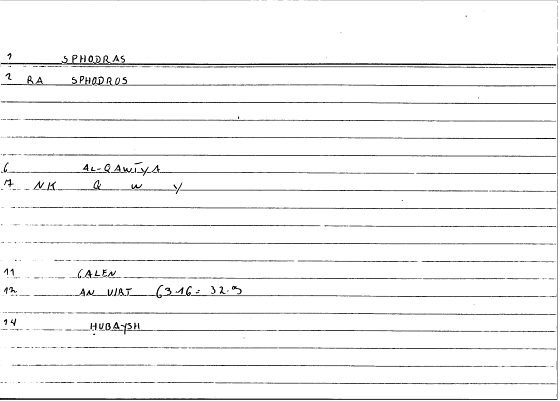 1 SPHODRAS
2 RA SPHODROS
6 AL-QAWĪYA
7 NK Q W Y
11 GALEN
12 AN VIRT 63.16 = 32.9
14 ḤUBAYSH